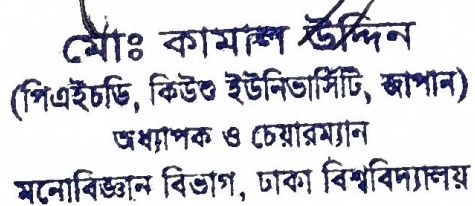 মোঃ কামাল উদ্দিন
(পিএইচডি, কিউশু ইউনিভার্সিটি, জাপান)
অধ্যাপক ও চেয়ারম্যান
মনোবিজ্ঞান বিভাগ, ঢাকা বিশ্ববিদ্যালয়